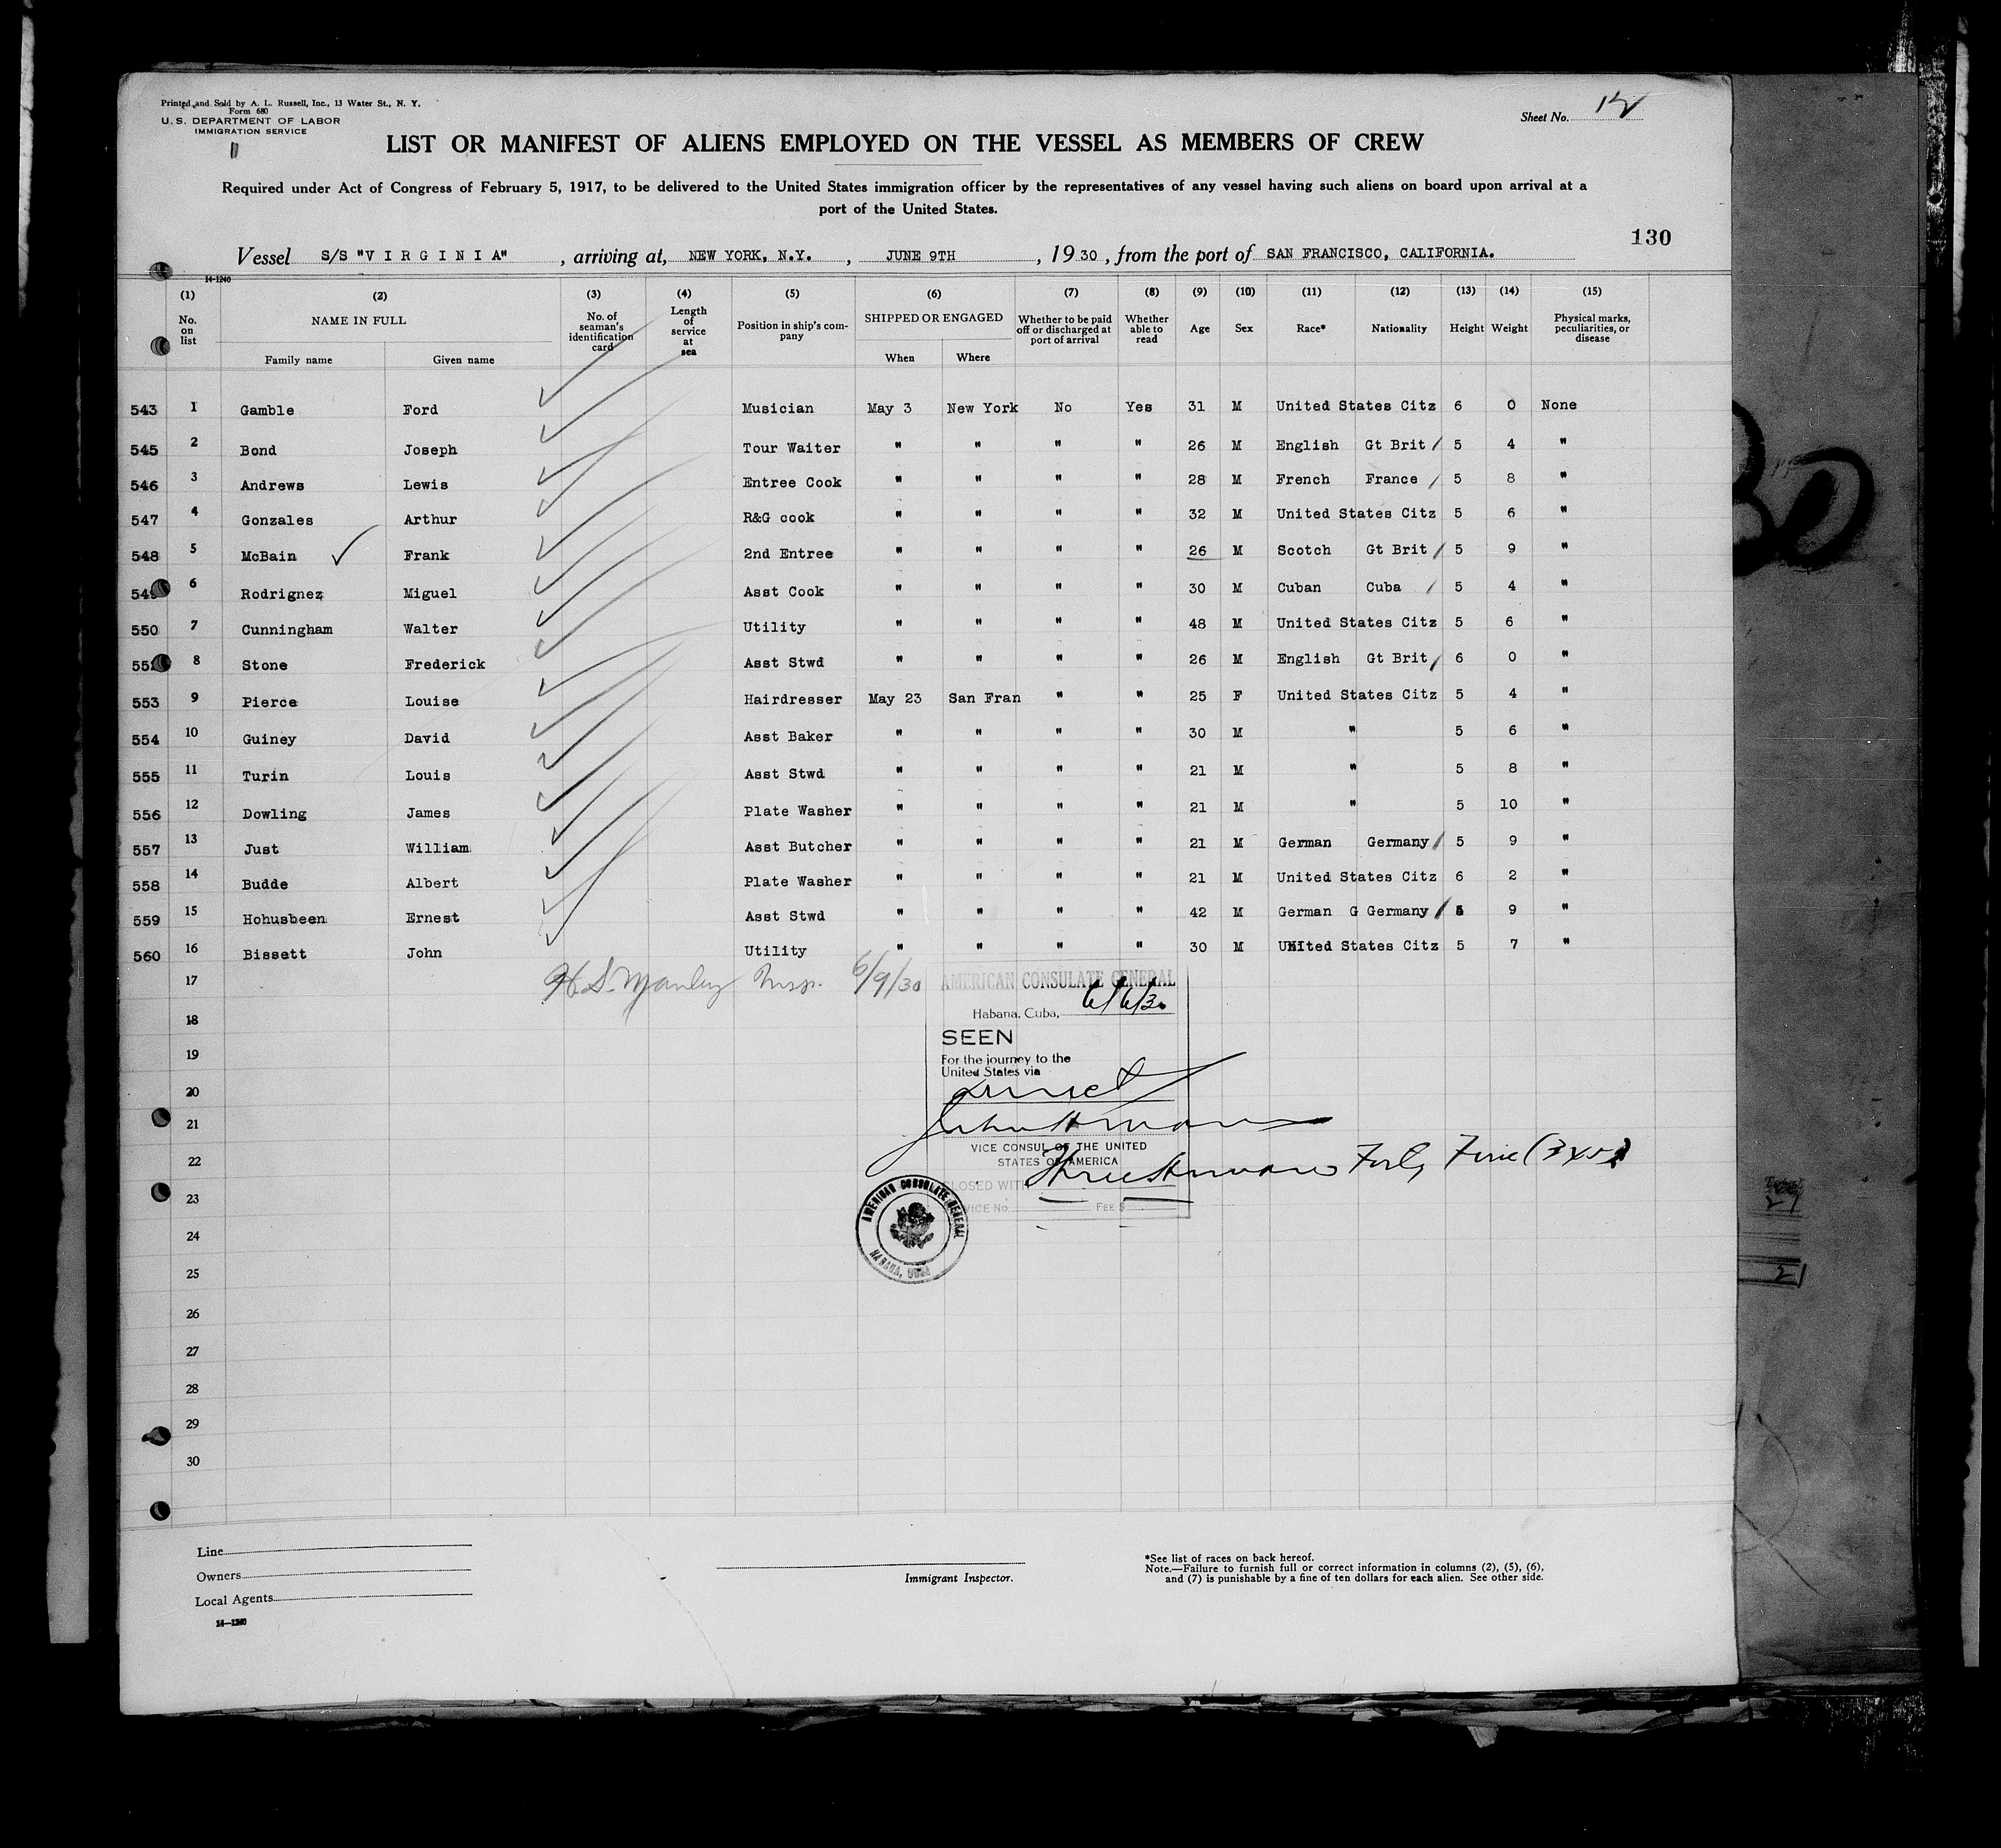 Printed and Sold by A. L. Russell, Inc., 13 Water St., N. Y.
Form 680
U. S. DEPARTMENT OF LABOR
IMMIGRATION SERVICE
Sheet No.
LIST OR MANIFEST OF ALIENS EMPLOYED ON THE VESSEL AS MEMBERS OF CREW
Required under Act of Congress of February 5, 1917, to be delivered to the United States immigration officer by the representatives of any vessel having such aliens on board upon arrival at a
port of the United States.
130
Vessel S/S "V I R G I N I A" , arriving at, NEW YORK, N.Y. , JUNE 9TH , 19 30 , from the port of SAN FRANCISCO, CALIFORNIA.
14-1240
(1) (2) (3) (4) (5) (6) (7) (8) (9) (10) (11) (12) (13) (14) (15)
No. on list NAME IN FULL No. of seaman's identification card Length of service at sea Position in ship's company SHIPPED OR ENGAGED Whether to be paid off or discharged at port of arrival Whether able to read Age Sex Race* Nationality Height Weight Physical marks, peculiarities, or disease
Family name Given name When Where
543 1 Gamble Ford Musician May 3 New York No Yes 31 M United States Citz 6 0 None
545 2 Bond Joseph Tour Waiter " " " " 26 M English Gt Brit 5 4 "
546 3 Andrews Lewis Entree Cook " " " " 28 M French France 5 8 "
547 4 Gonzales Arthur R&G cook " " " " 32 M United States Citz 5 6 "
548 5 McBain Frank 2nd Entree " " " " 26 M Scotch Gt Brit 5 9 "
549 6 Rodrignez Miguel Asst Cook " " " " 30 M Cuban Cuba 5 4 "
550 7 Cunningham Walter Utility " " " " 48 M United States Citz 5 6 "
552 8 Stone Frederick Asst Stwd " " " " 26 M English Gt Brit 6 0 "
553 9 Pierce Louise Hairdresser May 23 San Fran " " 25 F United States Citz 5 4 "
554 10 Guiney David Asst Baker " " " " 30 M " 5 6 "
555 11 Turin Louis Asst Stwd " " " " 21 M " 5 8 "
556 12 Dowling James Plate Washer " " " " 21 M " 5 10 "
557 13 Just William Asst Butcher " " " " 21 M German Germany 5 9 "
558 14 Budde Albert Plate Washer " " " " 21 M United States Citz 6 2 "
559 15 Hohusbeen Ernest Asst Stwd " " " " 42 M German G Germany 5 9 "
560 16 Bissett John Utility " " " " 30 M United States Citz 5 7 "
17 H. S. Manley Insp. 6/9/30
AMERICAN CONSULATE GENERAL
18 Habana, Cuba, 6/6/30
SEEN
19 For the journey to the
United States via
20 direct
21
VICE CONSUL OF THE UNITED
22 STATES OF AMERICA
Three Hundred Forty Five (345)
23 CLOSED WITH
SERVICE No. FEE $
AMERICAN CONSULATE GENERAL
HABANA, CUBA
24
25
26
27
28
29
30
Line
Owners
Local Agents
14-1240
Immigrant Inspector.
*See list of races on back hereof.
Note.—Failure to furnish full or correct information in columns (2), (5), (6),
and (7) is punishable by a fine of ten dollars for each alien. See other side.